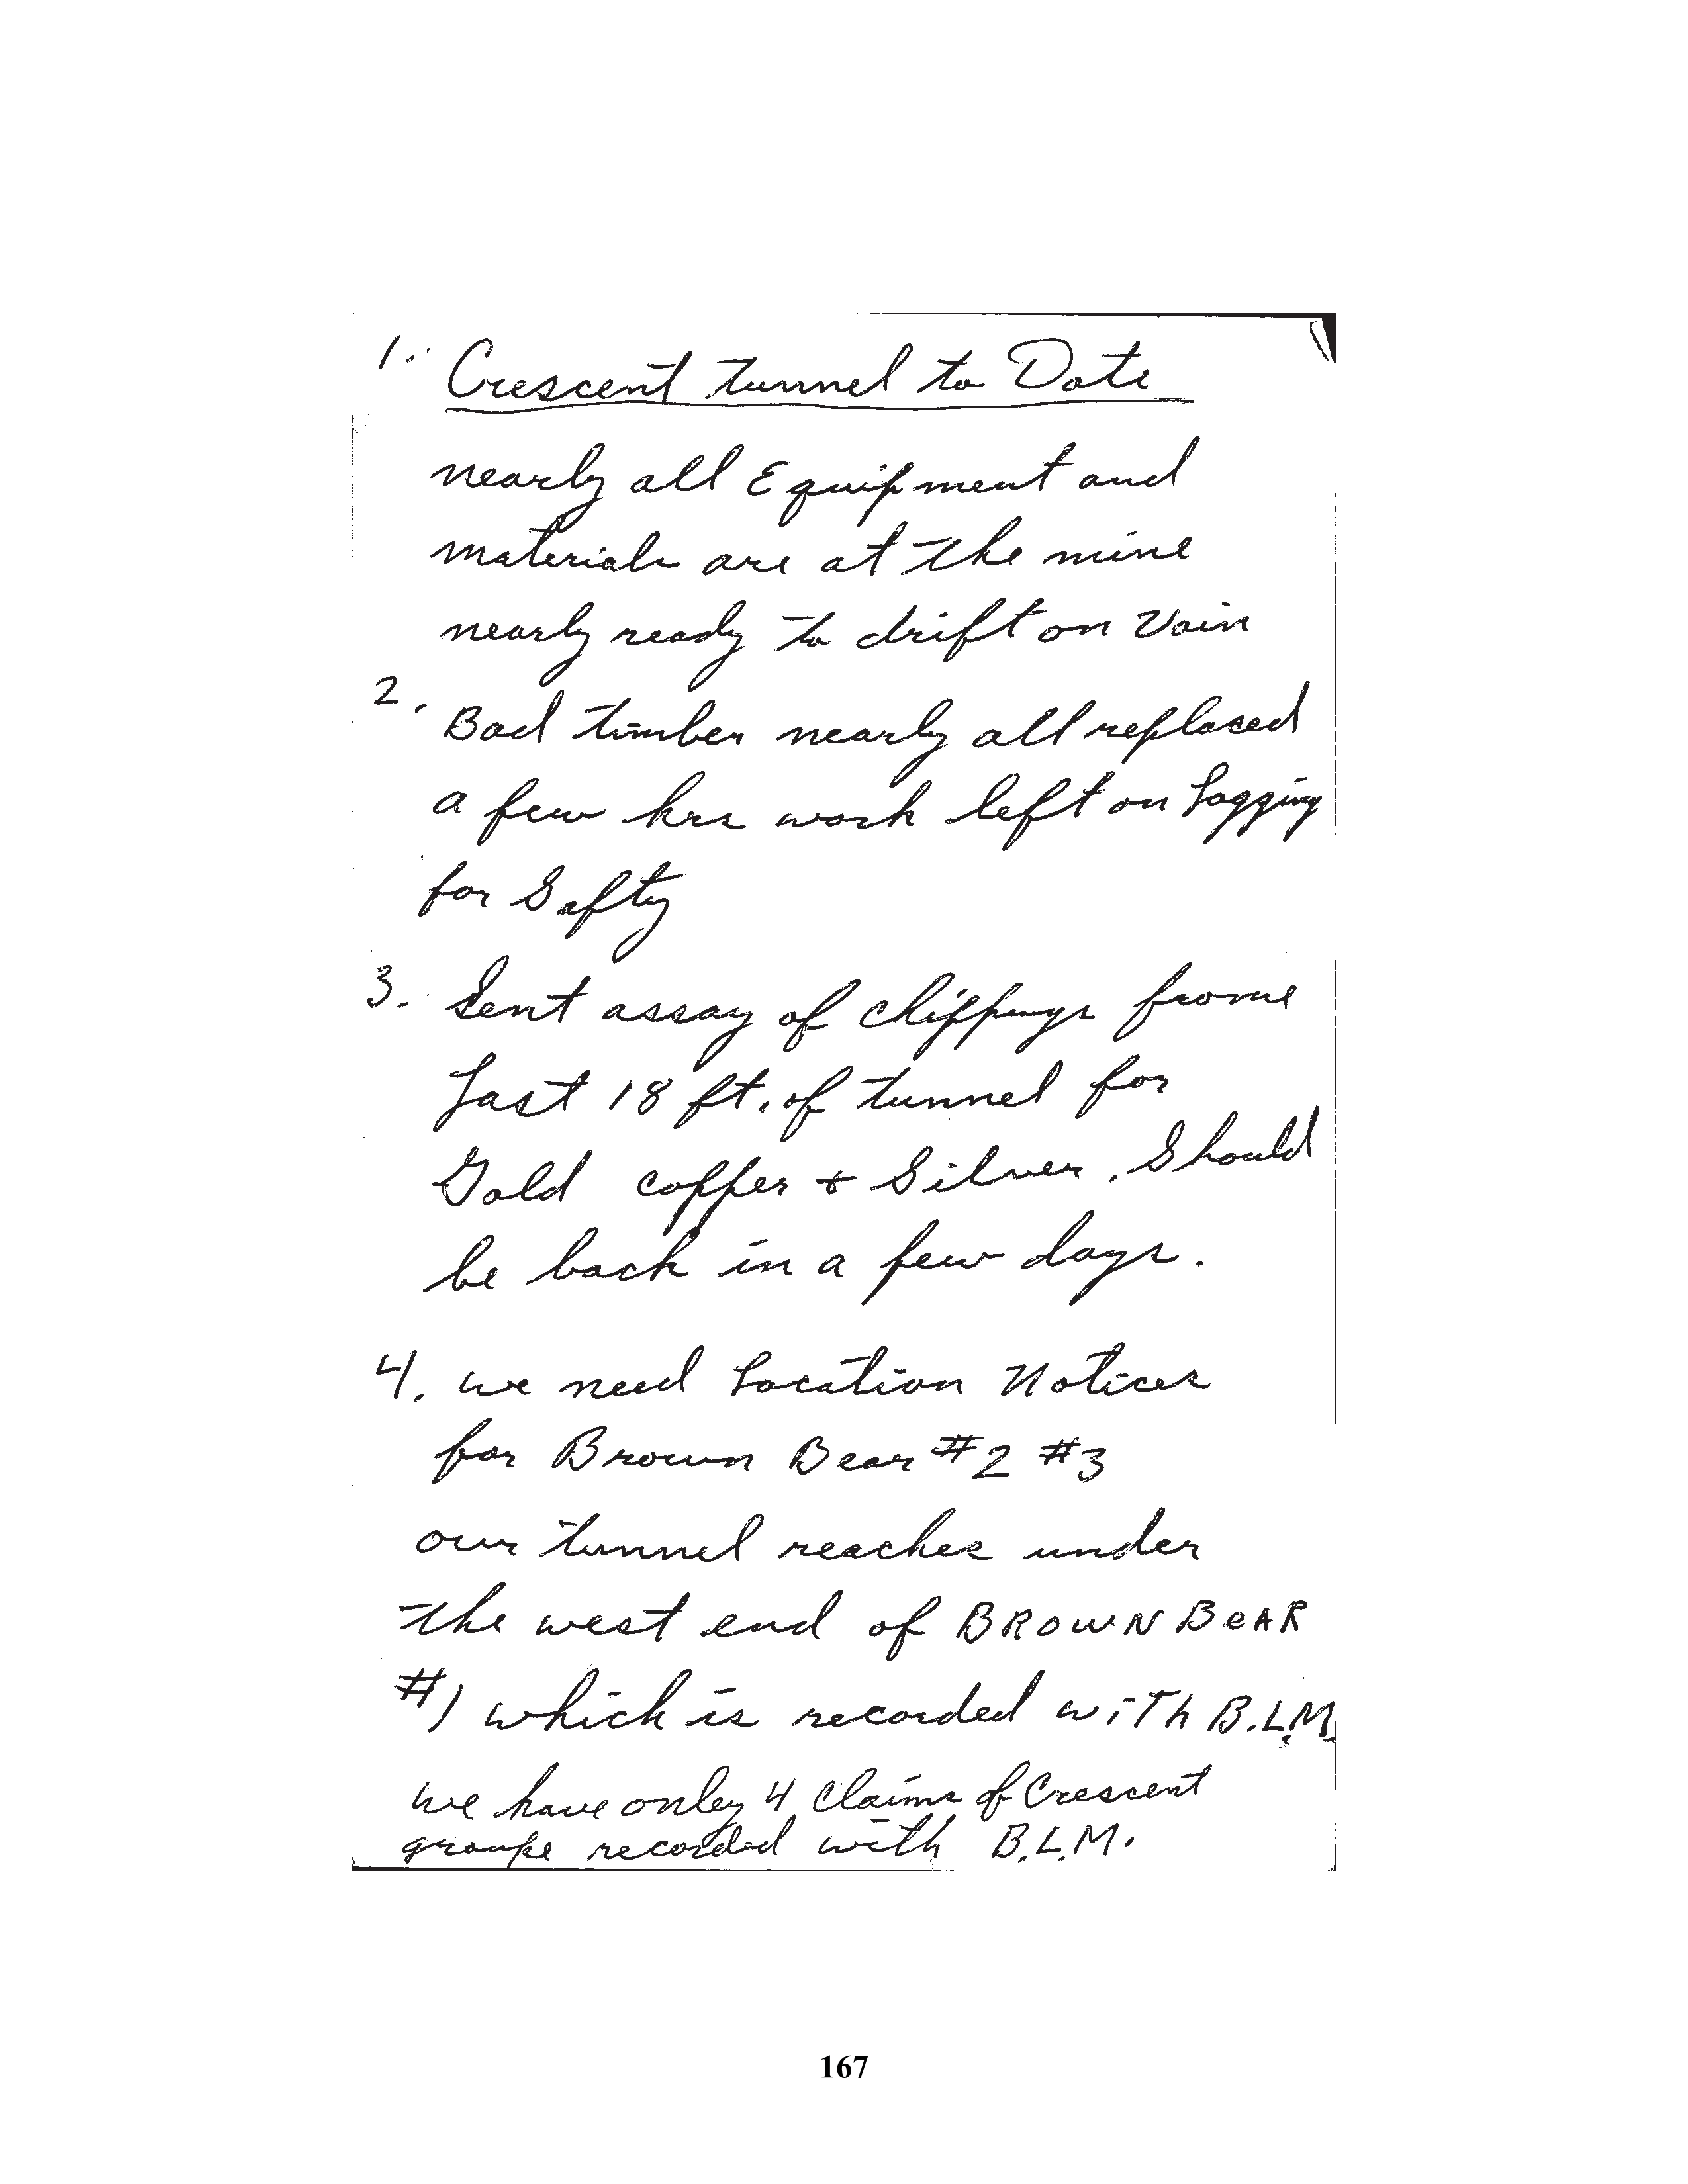 1. Crescent tunnel to Date
nearly all Equipment and
materials are at the mine
nearly ready to drift on Vain
2. Bad timber nearly all replaced
a few hrs work left on Lagging
for Safty
3. Sent assay of chippings frome
Last 18 ft. of tunnel for
Gold copper + Silver. Should
be back in a few days.
4. we need Location Notices
for Brown Bear #2 #3
our tunnel reaches under
the west end of BROWN BeAR
#1 which is recorded with B.L.M.
we have only 4 Claims of Crescent
groupe recorded with B.L.M.
167